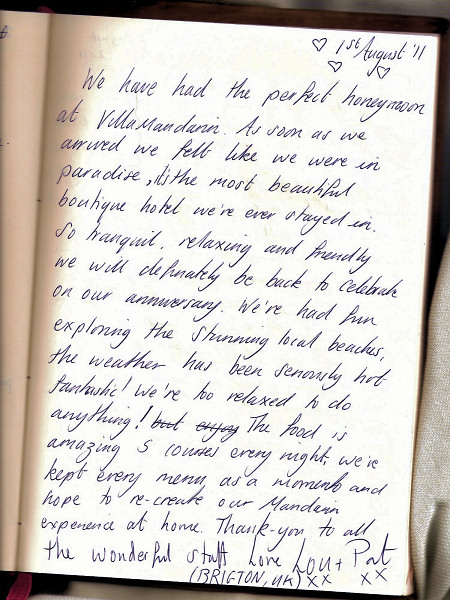 1st August '11
We have had the perfect honeymoon
at Villa Mandarin. As soon as we
arrived we felt like we were in
paradise, it's the most beautiful
boutique hotel we're ever stayed in.
So tranquil, relaxing and friendly
we will definately be back to celebrate
on our anniversary. We're had fun
exploring the stunning local beaches,
the weather has been seriously hot
fantastic! We're too relaxed to do
anything! but enjoy The food is
amazing 5 courses every night, we're
kept every menu as a momento and
hope to re-create our Mandarin
experience at home. Thank-you to all
the wonderful staff Love Lou + Pat
(BRIGTON, UK) xx xx